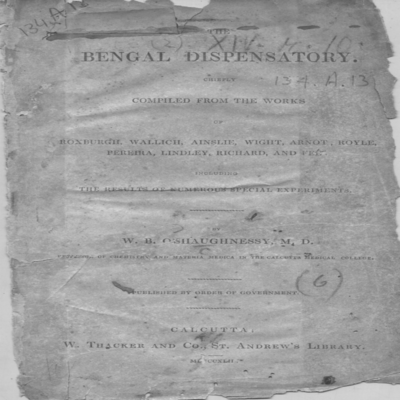 134.A.13
THE
(2) XIV-M-10.
BENGAL DISPENSATORY.
CHIEFLY
134.A.13
COMPILED FROM THE WORKS
OF
ROXBURGH, WALLICH, AINSLIE, WIGHT, ARNOT, ROYLE,
PEREIRA, LINDLEY, RICHARD, AND FEE.
INCLUDING
THE RESULTS OF NUMEROUS SPECIAL EXPERIMENTS.
BY
W. B. O'SHAUGHNESSY, M. D.
PROFESSOR OF CHEMISTRY AND MATERIA MEDICA IN THE CALCUTTA MEDICAL COLLEGE.
(6)
PUBLISHED BY ORDER OF GOVERNMENT.
CALCUTTA:
W. THACKER AND CO. ST. ANDREW'S LIBRARY.